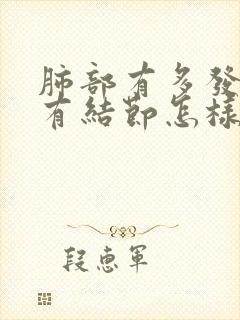 肺部有多發
有結節怎樣
段惠軍